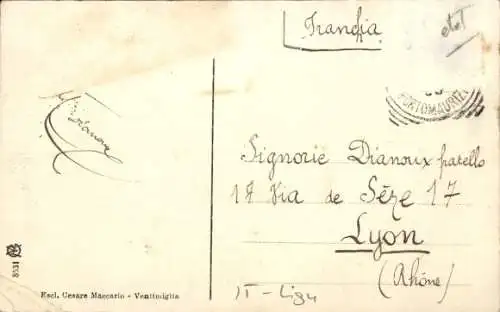 Francia
PORTOMAURIZ
Dianoux
Signorie Dianoux fratello
17 Via de Sèze 17
Lyon
(Rhône)
8531
Escl. Cesare Maccario - Ventimiglia
IT - Ligu